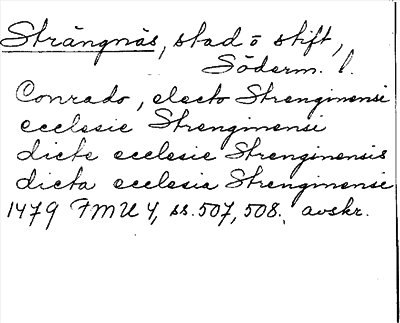 Strängnäs, stad o stift,
Söderm. l.
Conrado, electo Strenginensi
ecclesie Strenginensi
dicte ecclesie Strenginensis
dicta ecclesia Strenginensie
1479 FMU 4, ss. 507, 508., avskr.